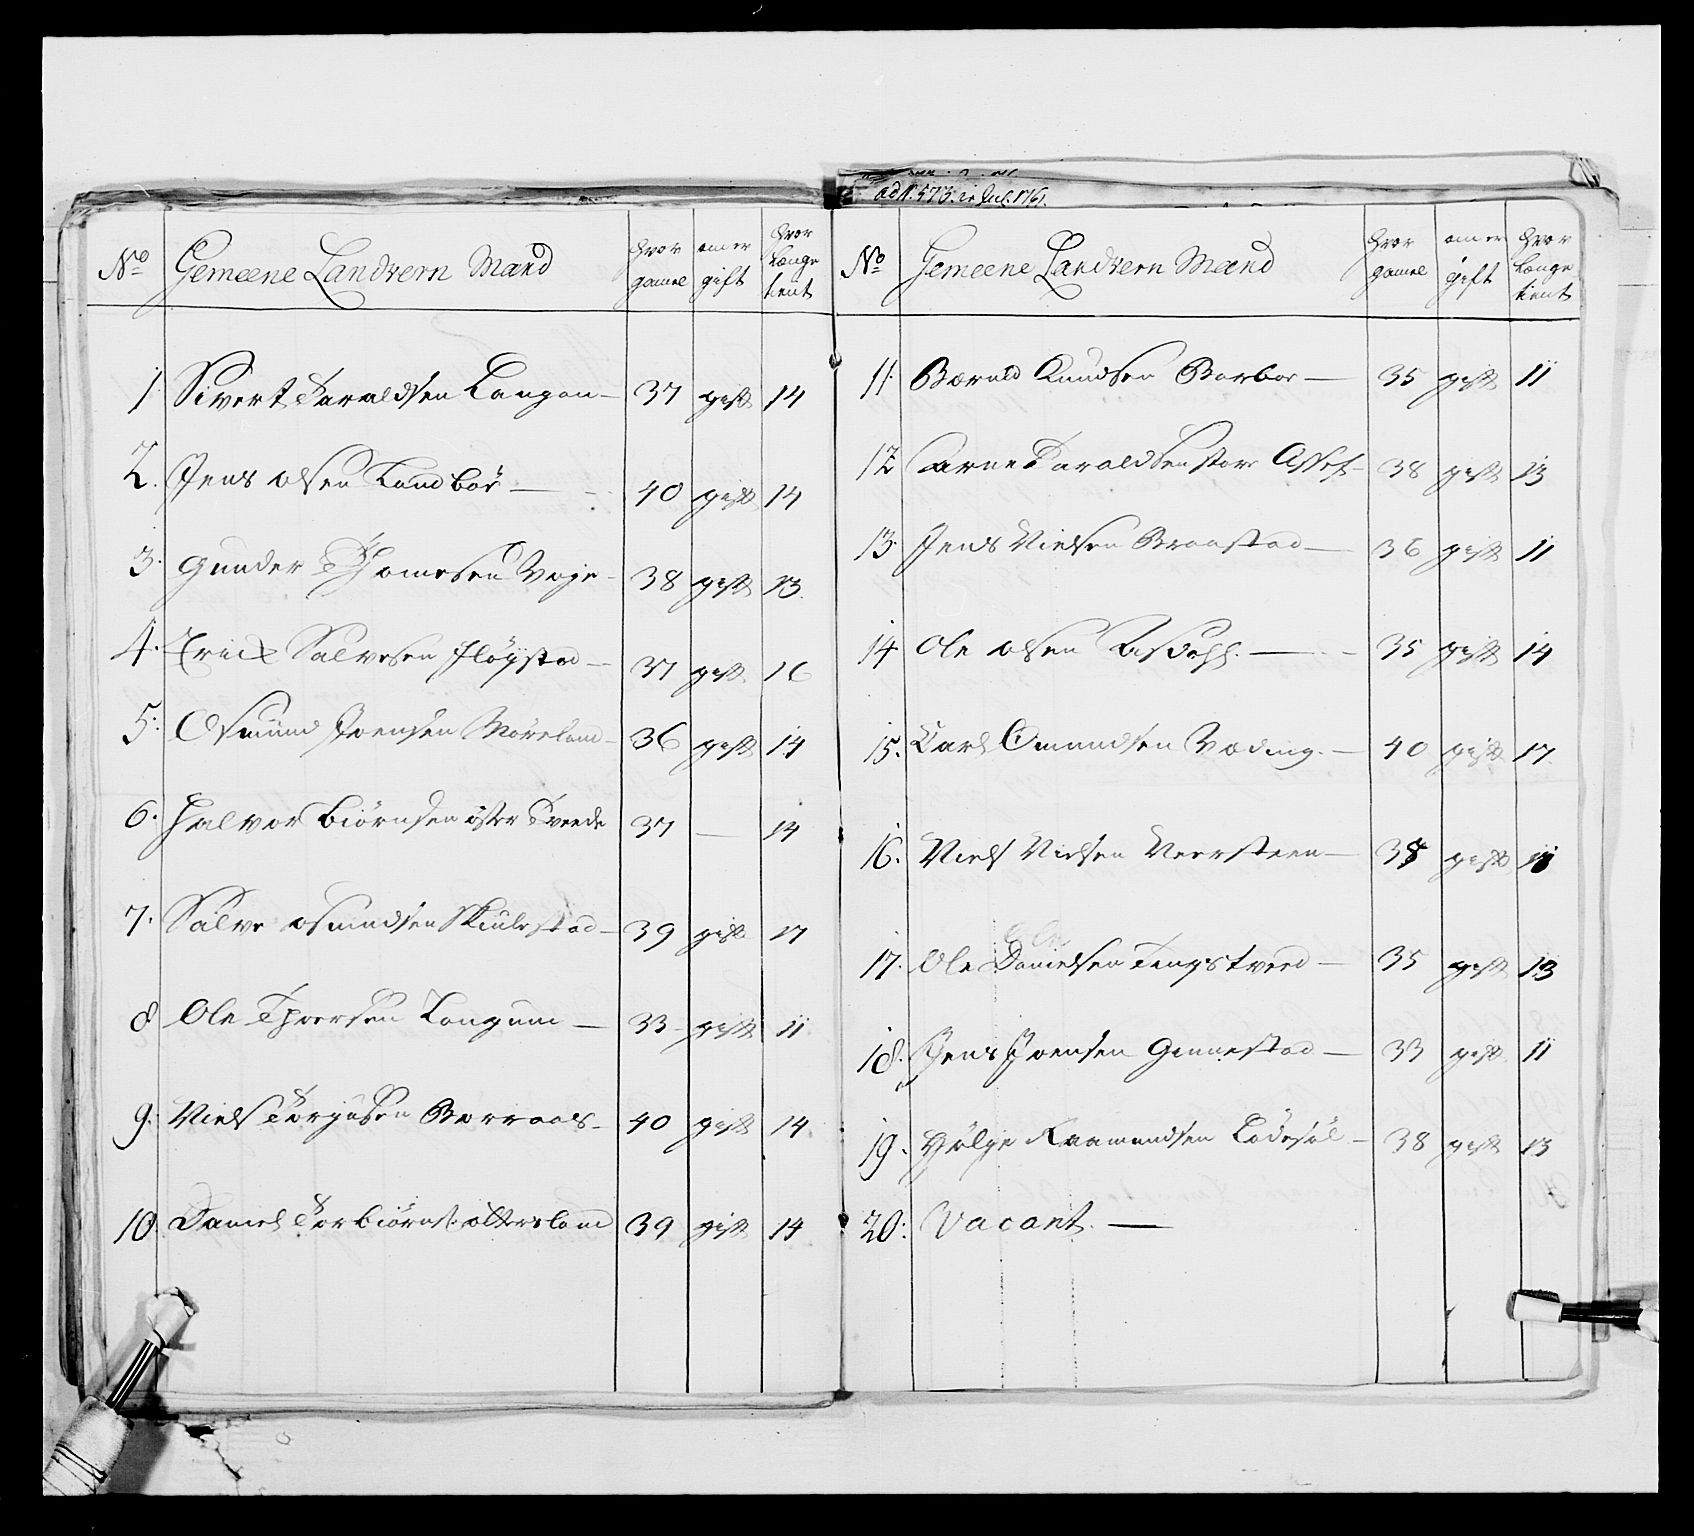 ad N. 573. in Jul. 1761.
No Gemeene Landvern Mand hvor gamel om er gift hvor længe tient
1 Sivert Taraldsen Langan – 37 gift 14
2. Jens Olsen Landbør – 40 gift 14
3. Gunder Thomesen Voje – 38 gift 13.
4. Erich Salvesen Fløystad – 37 gift 16
5. Osmund Joensen Møreland – 36 gift 14
6. Halvor Biørnsen øster Tveede 37 – 14
7. Salve Osmundsen Skiulestad – 39 gift 17
8 Ole Thorsen Langum – 33 gift 11
9. Niels Torjusen Borraas – 40 gift 14
10. Daniel Torbiørns. 39 gift 14
No Gemeene Landvern Mand hvor gamel om er gift hvor længe tient
11. Knudsen Borboe – 35 gift 11
12 Aarne Taraldsen store 38 gift 13
13. Jens Nielsen Braastad – 36 gift 11
14 Ole Olsen – 35 gift 14
15. Carl Omundsen Væding. – 40 gift 17
16. Niels Nielsen Neersteen – 38 gift 11
17. Ole Danielsen Tengstveed – 35 gift 13
18. Jens Joensen Ginnestad – 33 gift 11
19. Hølge Raamundsen Lødesøl – 38 gift 13
20. Vacant. –